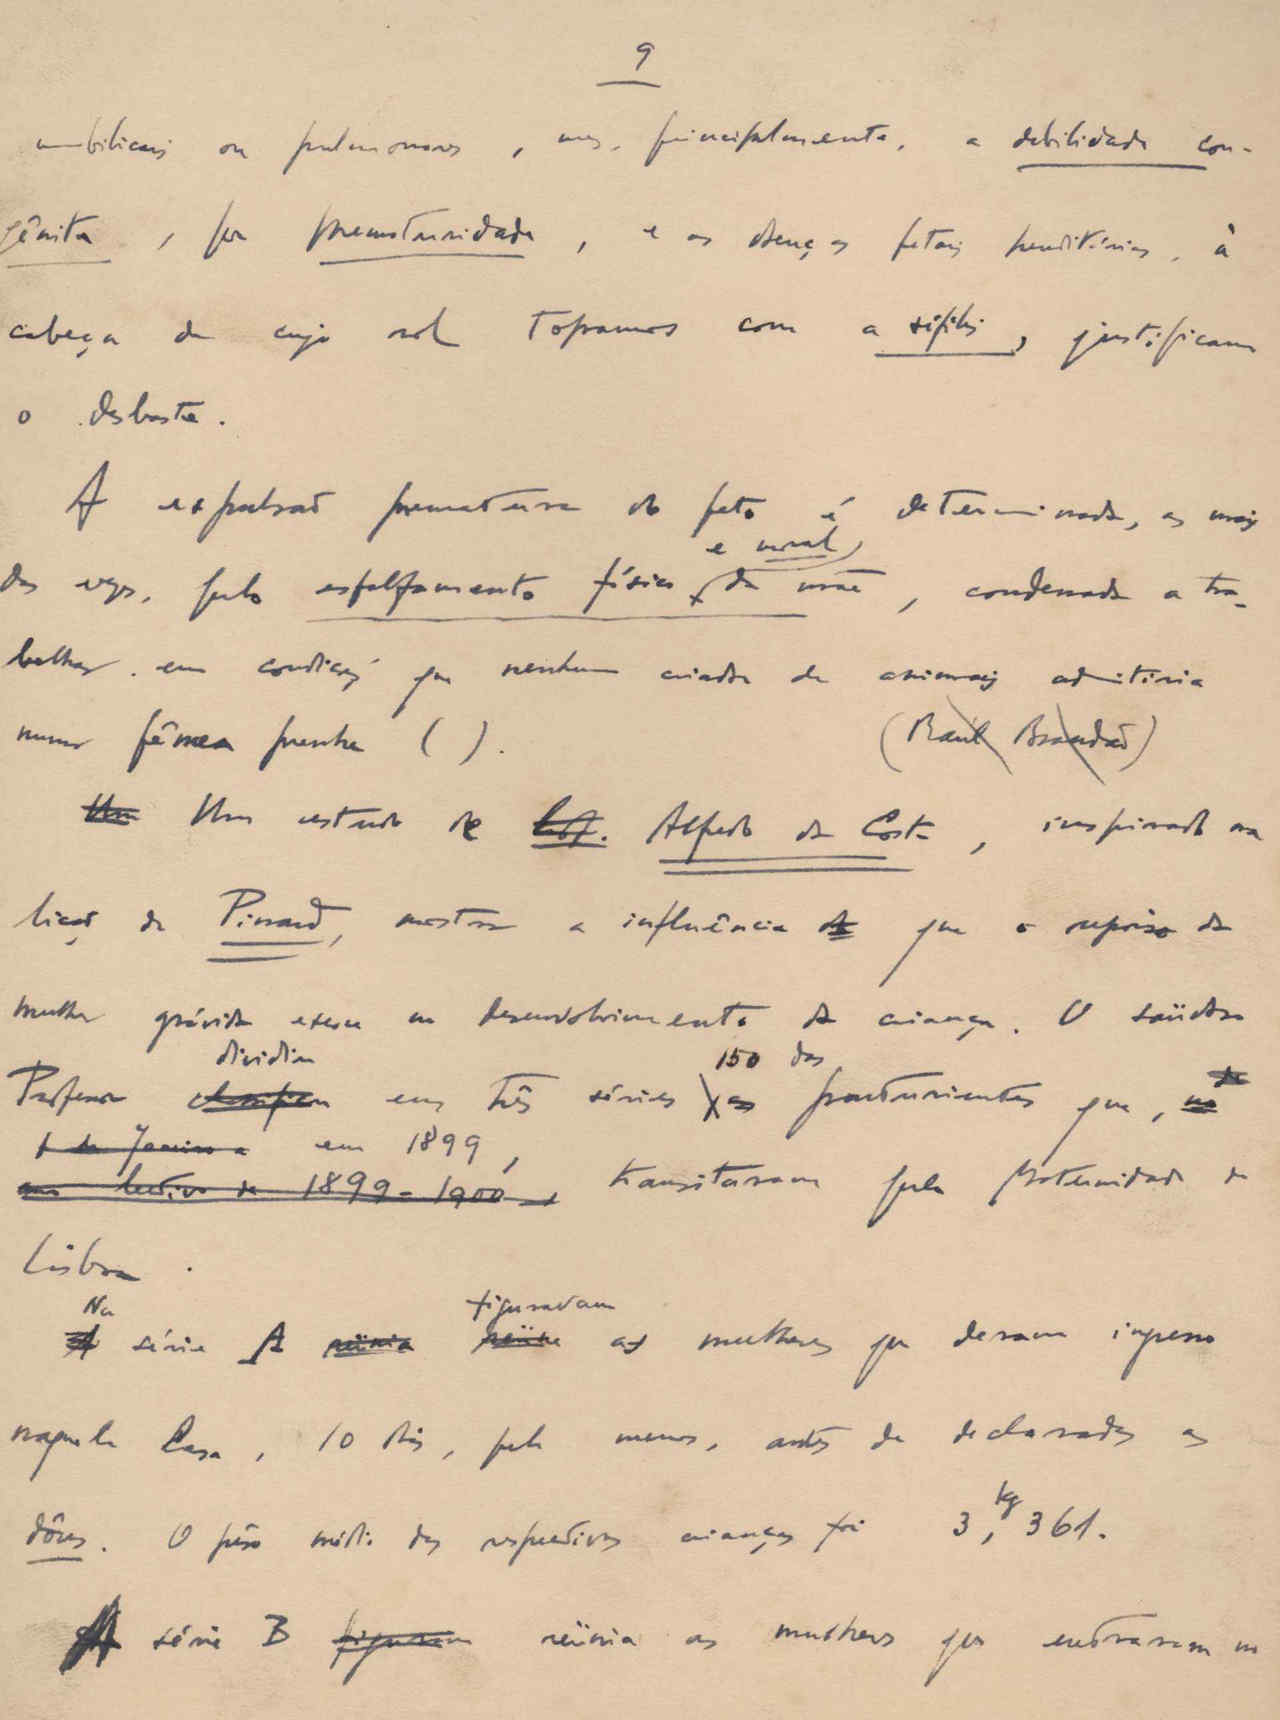 9
umbilicais ou pulmonares, mas, principalmente, a debilidade con-
gênita, por prematuridade, e as doenças fetais hereditárias, à
cabeça de cujo rol topamos com a sífilis, justificam
o desbaste.
A expulsão prematura do feto é determinada, as mais
e moral
das vezes, pelo esfalfamento físico da mãe, condenada a tra-
balhar em condições que nenhum criador de animais admitiria
numa fêmea prenhe ( ). (Raúl Brandão)
Um Um estudo de Prof. Alfredo da Costa, inspirado na
lição de Pinard, mostra a influência que o repoiso da
mulher grávida exerce no desenvolvimento da criança. O saüdoso
dividiu 150 das
Professor classificou em três séries as parturientes que, no
1 de Janeiro a em 1899,
ano lectivo de 1899-1900, transitaram pela Maternidade de
Lisboa.
Na figuravam
A série A reünia reüne as mulheres que deram ingresso
naquela Casa, 10 dias, pelo menos, antes de declaradas as
dôres. O pêso médio das respectivas crianças foi 3,kg 361.
A série B figuram reünia as mulheres que entraram na